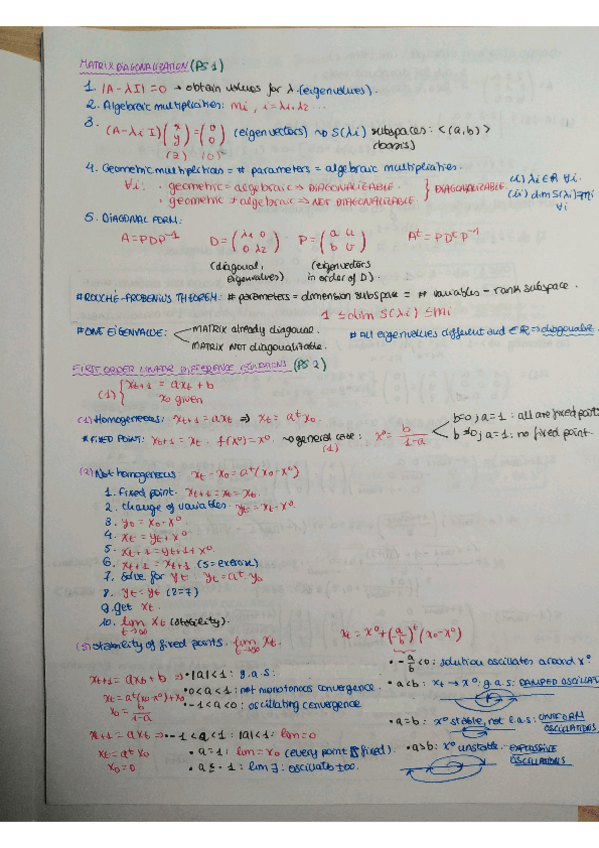 MATRIX DIAGONALIZATION (PS 1)
1. |A - λI| = 0 → obtain values for λ (eigenvalues).
2. Algebraic multiplicities: mi, i = λ1, λ2 ...
3. (A - λi I) (x y) = (0 0) (eigenvectors) ~> S(λi) subspaces: <(a,b)>
(2) (0) (basis)
4. Geometric multiplicities = # parameters = algebraic multiplicities.
∀i: · geometric = algebraic => DIAGONALIZABLE.
· geometric ≠ algebraic => NOT DIAGONALIZABLE.
} DIAGONALIZABLE (i) λi ∈ R ∀i.
(ii) dim S(λi) = mi ∀i
5. DIAGONAL FORM:
A = PDP⁻¹ D = (λ1 0 0 λ2) P = (a u b v) Aᵗ = PDᵗP⁻¹
(diagonal, eigenvalues) (eigenvectors in order of D).
# ROUCHÉ-FROBENIUS THEOREM: # parameters = dimension subspace = # variables - rank subspace.
1 ≤ dim S(λi) ≤ mi
# ONE EIGENVALUE: MATRIX already diagonal.
MATRIX NOT diagonalizable.
# All eigenvalues different and ∈ R => diagonalize.
FIRST ORDER LINEAR DIFFERENCE EQUATIONS (PS 2)
(1) { xt+1 = axt + b
x0 given
(1) Homogeneous: xt+1 = axt => xt = aᵗx0.
* FIXED POINT: xt+1 = xt. f(x⁰) = x⁰. ~> general case: x⁰ = b/1-a
(1)
b=0; a=1: all are fixed points
b≠0; a=1: no fixed point.
(2) Not homogeneous: xt - x0 = aᵗ(x0 - x⁰)
1. Fixed point. xt+1 = xt = x0.
2. Change of variables. yt = xt - x⁰.
3. y0 = x0 - x⁰
4. xt = yt + x⁰
5. xt+1 = yt+1 + x⁰
6. xt+1 = xt+1 (5 = exercise)
7. Solve for yt. yt = aᵗ. y0
8. yt = yt (2=7)
9. get xt.
10. lim xt (stability).
t→∞
(3) Stability of fixed points. lim xt.
t→∞
xt = x⁰ + (-a/b)ᵗ (x0 - x⁰)
xt+1 = axt + b => · |a| < 1: g.a.s:
xt = aᵗ(x0 - x⁰) + x0
x0 = b/1-a
· 0 < a < 1: not monotonous convergence.
· -1 < a < 0: oscillating convergence
xt+1 = axt => · -1 < a < 1: |a| < 1: lim = 0
xt = aᵗ x0
x0 = 0
· a = 1: lim = x0 (every point is fixed).
· a ≤ -1: lim ∄: oscillates ±∞.
· -a/b < 0: solution oscillates around x⁰
· a < b: xt → x⁰: g.a.s: DAMPED OSCILLAT
· a = b: x⁰ stable, not l.a.s: UNIFORM OSCILLATIONS
· a > b: x⁰ unstable. EXPLOSIVE OSCILLATIONS